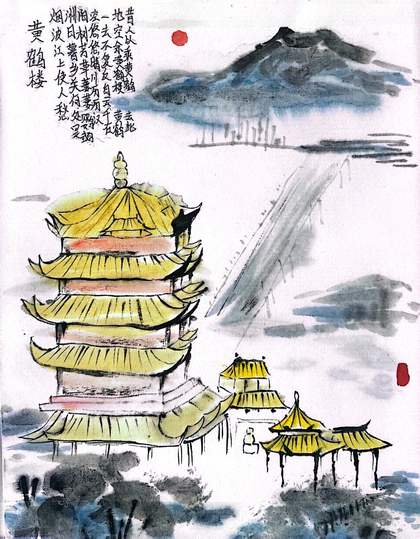 昔人已乘黄鹤去此
地空余黄鹤楼 黄鹤
一去不复返白云千载
空悠悠晴川历历汉
阳树芳草萋萋鹦鹉
洲日暮乡关何处是
烟波江上使人愁
黄鹤楼